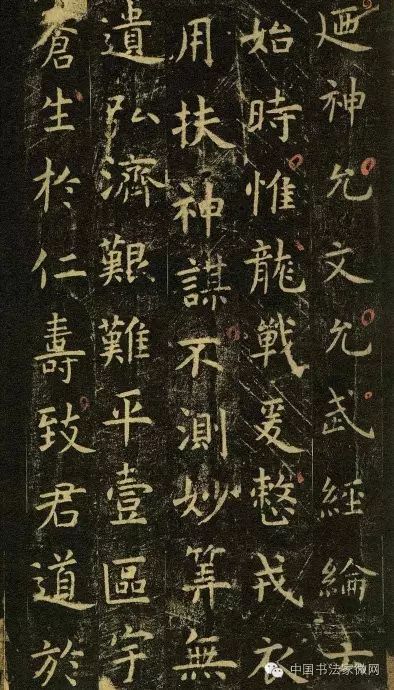 廼神允文允武經綸
始時惟龍戰爰整戎衣
用扶神謀不測妙筭無
遺弘濟艱難平壹區宇
蒼生於仁壽致君道於
中国书法家微网